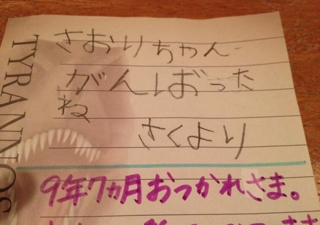 さおりちゃん
がんばった
ね
さくより
9年7ヵ月おつかれさま。
TYRANNOS